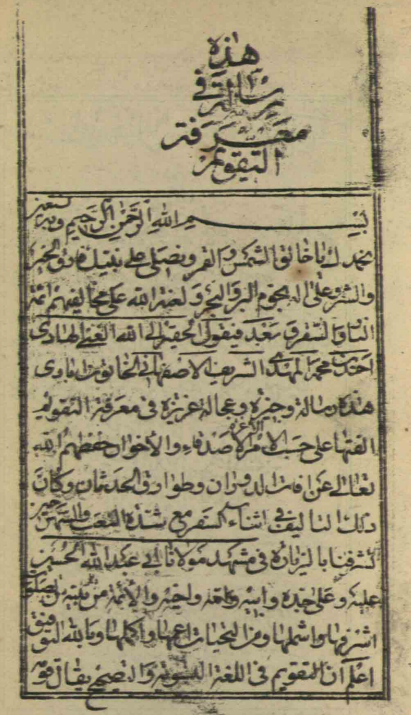 هذه
رسالة في
معرفة
التقويم
بسم الله الرحمن الرحيم وبه نستعين
نحمدك يا خالق الشمس والقمر ونصلي على
والشر وعلى اله نجوم البر والبحر ولعنة الله على مخالفيهم
النار والسقر وبعد فيقول الحقير الى الله الغني الهادي
محمد المهدي الشريف الاصفهاني الخاتون ابادي
هذه رسالة وجيزة وعجالة عزيزة في معرفة التقويم
الفتها على حسب الامر الاصدقاء والاخوان حفظهم الله
تعالى عن افات الدوران وطوارق الحدثان وكان
ذلك التاليف في اثناء السفر مع شدة التعب والسهر حين
تشرفنا بالزيارة في مشهد مولانا ابي عبد الله الحسين
عليه وعلى جده وابيه وامه واخيه والائمة من بنيه من الصلوة
اشرفها واشملها ومن التحيات اعمها واكملها وبالله التوفيق
اعلم ان التقويم في اللغة التسوية والتصحيح يقال قوم